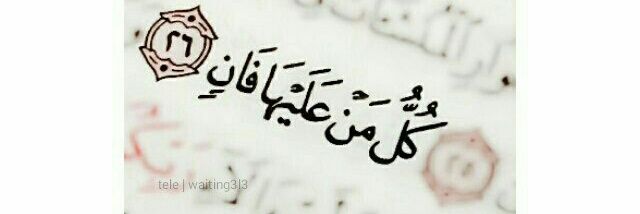 كُلُّ مَنْ عَلَيْهَا فَانٍ ٢٦
٢٥
tele | waiting3l3